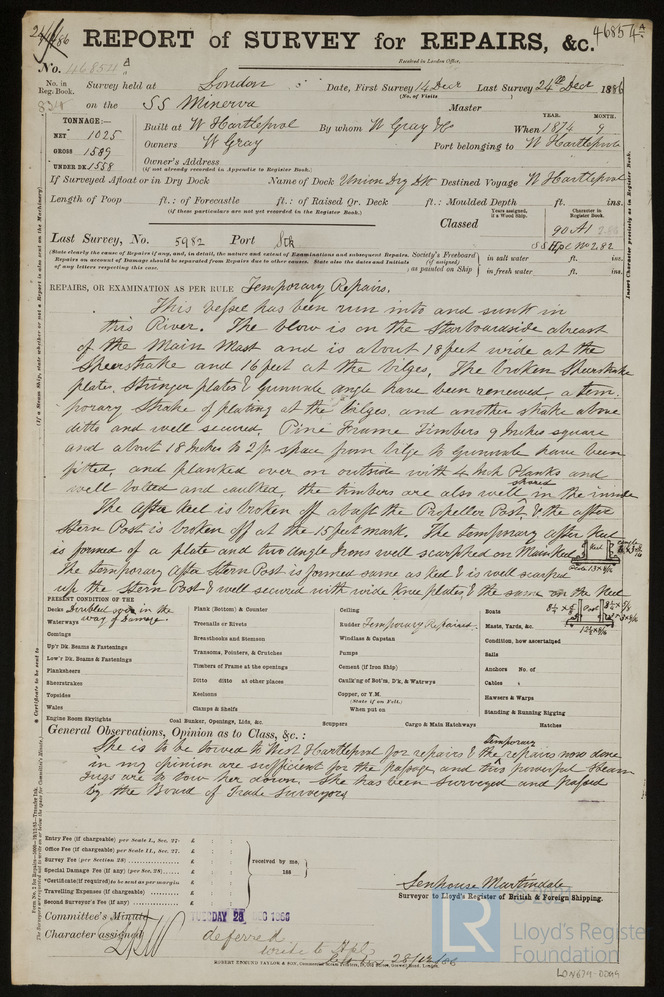 REPORT of SURVEY for REPAIRS, &c.
46857 A
Received in London Office,
No.
No. in Reg. Book.
Survey held at London
Date, First Survey 14 Decr
Last Survey 24th Decr 1886
(No. of Visits
on the SS Minerva
Master
TONNAGE:—
NET 1025
GROSS 1589
UNDER DK 1558
Built at W Hartlepool
By whom W Gray & Co
When 1874 9
YEAR.
MONTH.
Owners W Gray
Port belonging to W Hartlepool
Owner's Address
(If not already recorded in Appendix to Register Book.)
If Surveyed Afloat or in Dry Dock
Name of Dock Union Dry Dk
Destined Voyage W Hartlepool
Length of Poop ft.: of Forecastle ft.: of Raised Qr. Deck ft.: Moulded Depth ft. ins.
(If these particulars are not yet recorded in the Register Book.)
Classed
Years assigned, if a Wood Ship.
Character in Register Book.
90 A1
Last Survey, No. 5982 Port Stk
(State clearly the cause of Repairs if any, and, in detail, the nature and extent of Examinations and subsequent Repairs.
Repairs on account of Damage should be separated from Repairs due to other causes. State also the dates and Initials
of any letters respecting this case.
Society's Freeboard (if assigned) as painted on Ship
in salt water ft. ins.
in fresh water ft. ins.
REPAIRS, OR EXAMINATION AS PER RULE Temporary Repairs.
This vessel has been run into and sunk in
this River. The blow is on the Starboardside abreast
of the Main Mast and is about 18 feet wide at the
Sheerstrake and 16 feet at the bilges. The broken Sheerstrake
plate, Stringer plates & Gunwale angle have been renewed, a tem-
porary Strake of plating at the bilges, and another strake above
ditto and well secured. Pine Frame Timbers 9 Inches square
and about 18 Inches to 2 ft space from bilge to Gunwale have been
fitted, and planked over on outside with 4 Inch Planks and
well bolted and caulked, the timbers are also well shored in the inside
The After Keel is broken off abaft the Propeller Post, & the after
Stern Post is broken off at the 15 feet mark. The temporary after Keel
is formed of a plate and two angle Irons well scarphed on Main Keel
The temporary After Stern Post is formed same as Keel & is well scarped
up the Stern Post & well secured with wide knee plates & the same on the Keel
PRESENT CONDITION OF THE
Decks Doubled over in the way of damage.
Waterways
Comings
Up'r Dk. Beams & Fastenings
Low'r Dk. Beams & Fastenings
Planksheers
Sheerstrakes
Topsides
Wales
Engine Room Skylights
Plank (Bottom) & Counter
Treenails or Rivets
Breasthooks and Stemson
Transoms, Pointers, & Crutches
Timbers of Frame at the openings
Ditto ditto at other places
Keelsons
Clamps & Shelfs
Coal Bunker, Openings, Lids, &c.
Ceiling
Rudder Temporary Repaired.
Windlass & Capstan
Pumps
Cement (if Iron Ship)
Caulk'ng of Bot'm, D'k, & Watrwys
Copper, or Y.M.
(State if on Felt.)
When put on
Scuppers
Cargo & Main Hatchways
Boats
Masts, Yards, &c.
Condition, how ascertained
Sails
Anchors No. of
Cables
Hawsers & Warps
Standing & Running Rigging
Hatches
General Observations, Opinion as to Class, &c.:
She is to be towed to West Hartlepool for repairs & the temporary repairs now done
in my opinion are sufficient for the passage, and two powerful Steam
Tugs are to tow her down. She has been Surveyed and passed
by the Board of Trade Surveyors
Entry Fee (if chargeable) per Scale I., Sec. 27. £ : :
Office Fee (if chargeable) per Scale II., Sec. 27. £ : :
Survey Fee (per Section 28) £ : :
Special Damage Fee (if any) (per Sec. 28) £ : :
*Certificate (if required) to be sent as per margin £ : :
Travelling Expenses (if chargeable) £ : :
Second Surveyor's Fee (if any) £ : :
received by me,
188
Senhouse Martindale
Surveyor to Lloyd's Register of British & Foreign Shipping.
Committee's Minute
TUESDAY 28 DEC 1886
Character assigned
deferred
write to Hpl
28/12/86
LR
Lloyd's Register
Foundation
LON679-0099